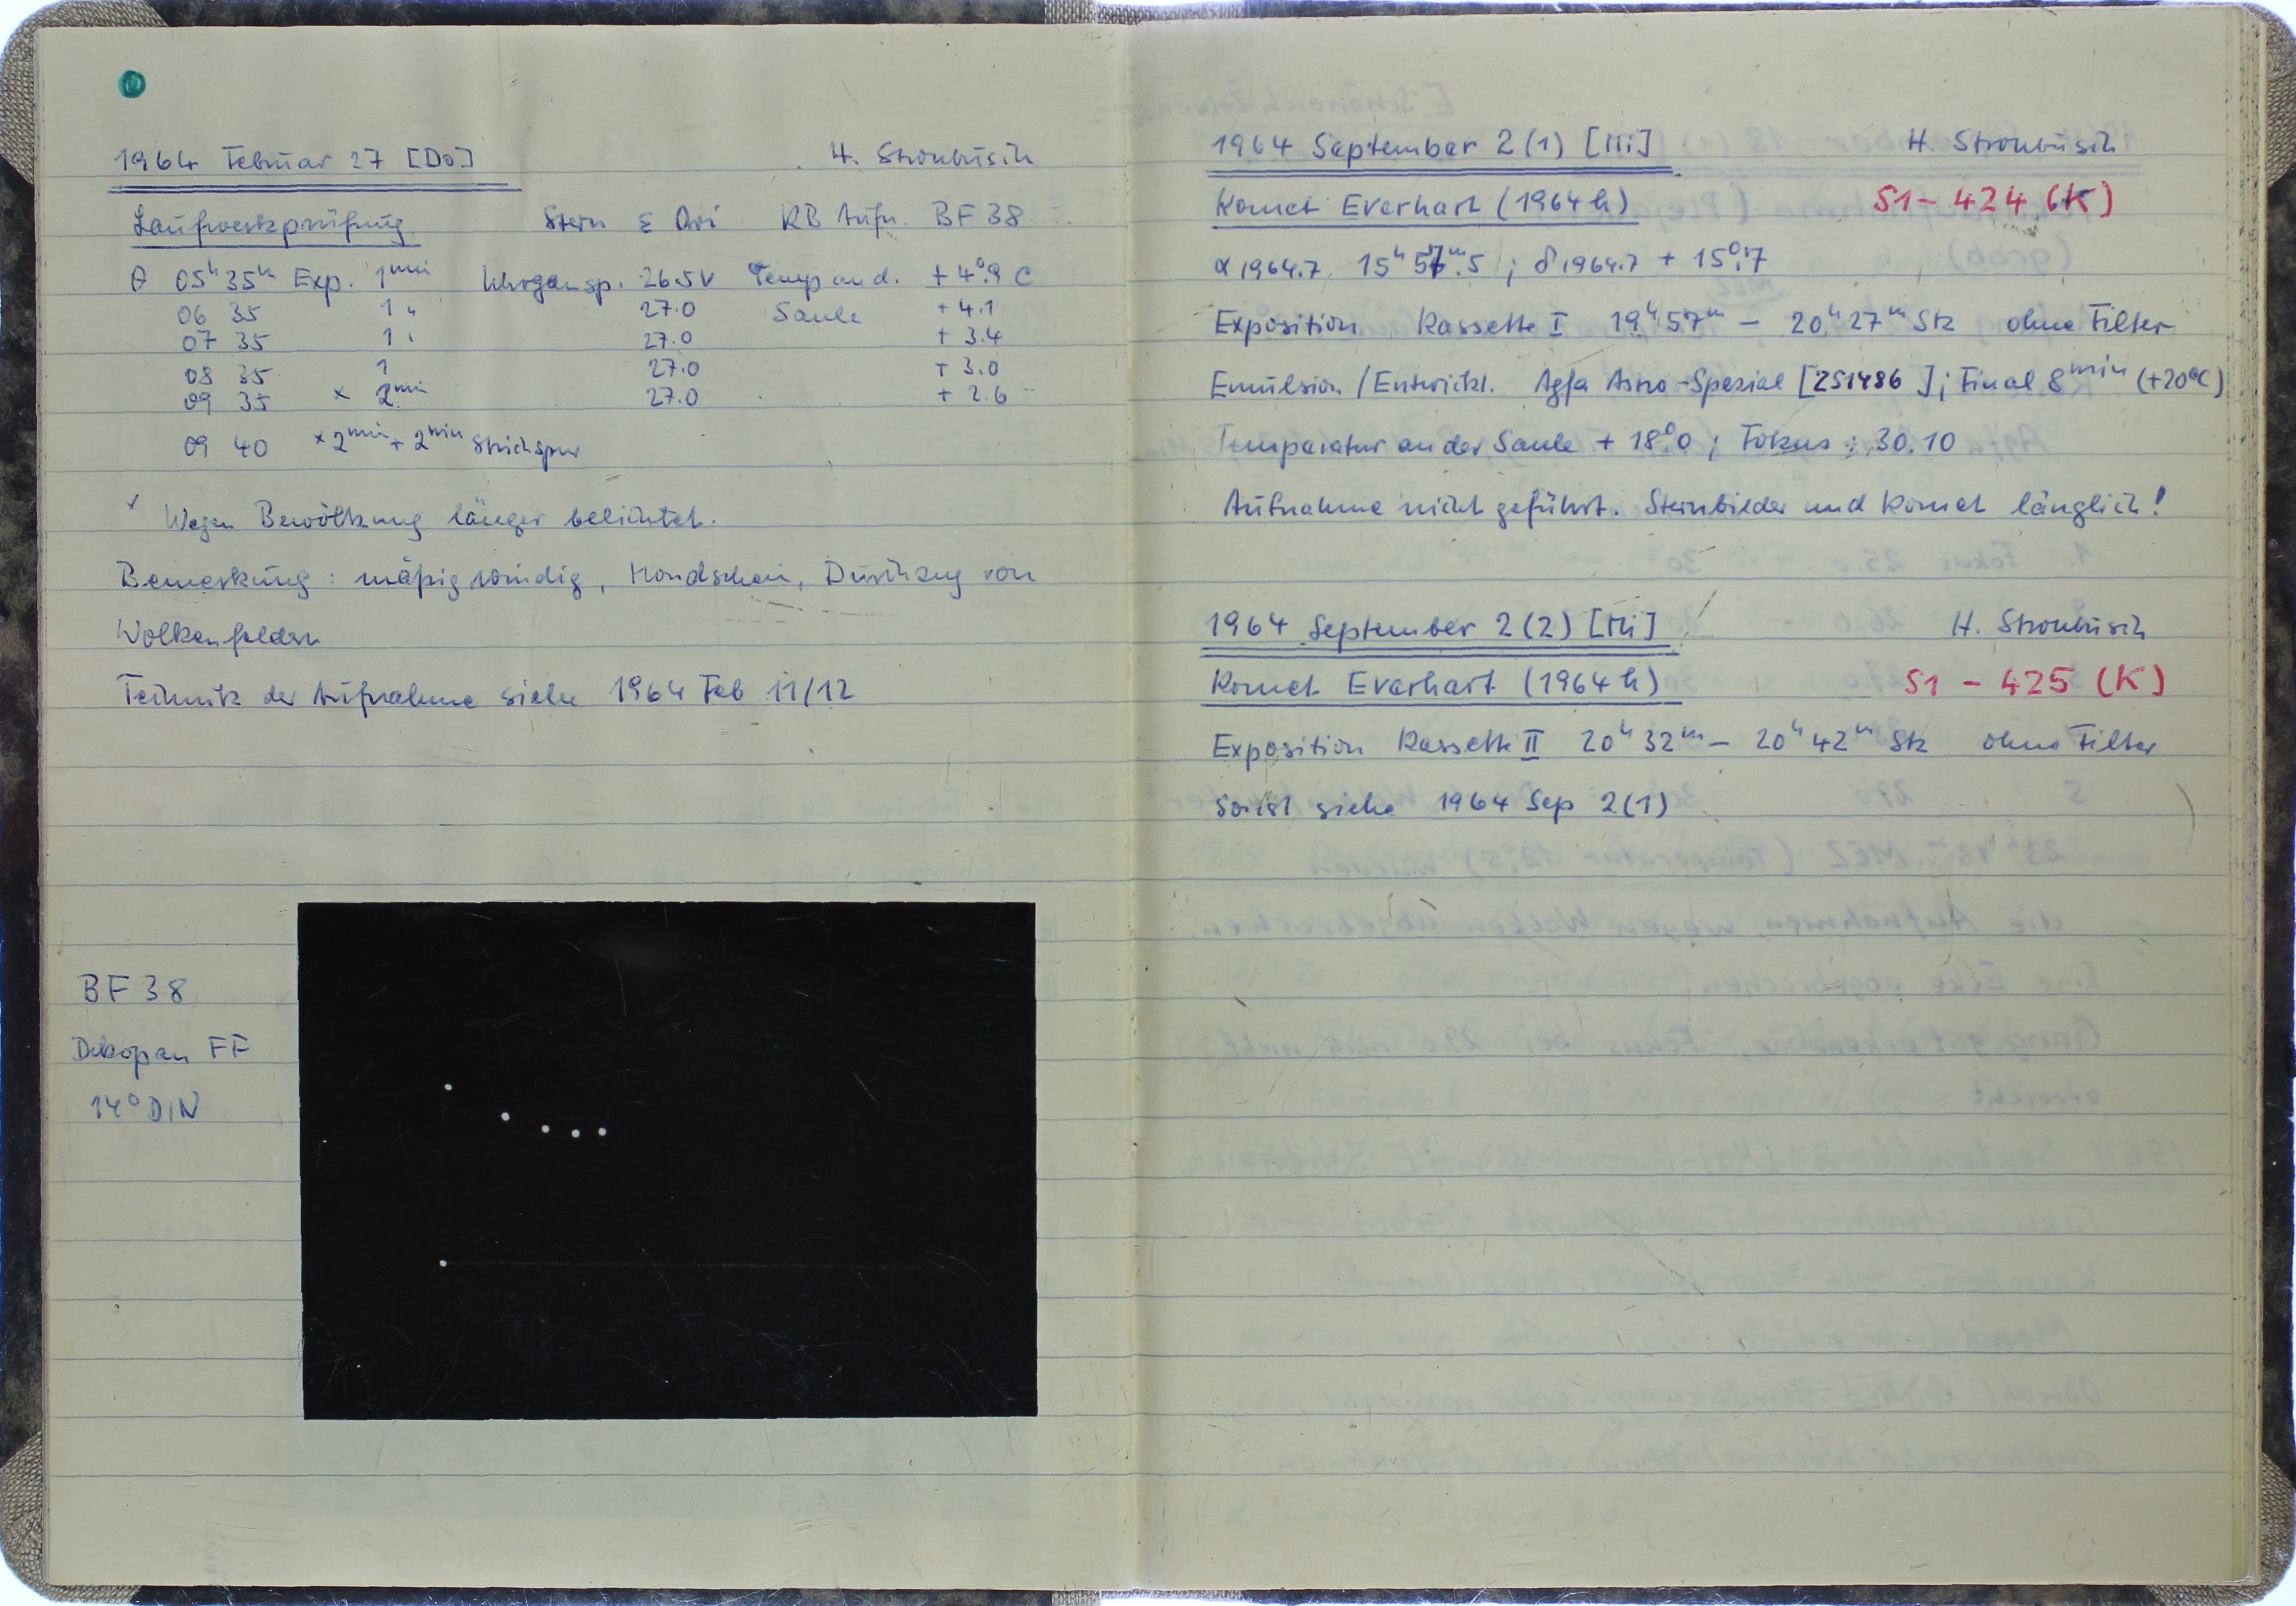 1964 Februar 27 [Do.] H. Strohbusch
Laufwerksprüfung Stern ε Ori KB Aufn. BF 38
θ 05ʰ 35ᵐ Exp. 1ᵐⁱⁿ Uhrgansp. 26.5V Temp an d. + 4°.9 C
06 35 1 " 27.0 Säule + 4.1
07 35 1 " 27.0 + 3.4
08 35 1 27.0 + 3.0
09 35 × 2ᵐⁱⁿ 27.0 + 2.6
09 40 × 2ᵐⁱⁿ + 2ᵐⁱⁿ Strichspur
× Wegen Bewölkung länger belichtet.
Bemerkung : mäßig windig, Mondschein, Durchzug von
Wolkenfeldern
Technik der Aufnahme siehe 1964 Feb 11/12
BF 38
Dokopan FF
14° DIN
1964 September 2 (1) [Mi] H. Strohbusch
Komet Everhart (1964 h) S1 - 424 (K)
α 1964.7 15ʰ 57ᵐ.5 ; δ 1964.7 + 15°.7
Exposition Kassette I 19ʰ 57ᵐ – 20ʰ 27ᵐ Stz ohne Filter
Emulsion / Entwickl. Agfa Astro-Spezial [251486] ; Final 8ᵐⁱⁿ (+20°C)
Temperatur an der Säule + 18°.0 ; Fokus : 30.10
Aufnahme nicht geführt. Sternbilder und Komet länglich!
1964 September 2 (2) [Mi] H. Strohbusch
Komet Everhart (1964 h) S1 - 425 (K)
Exposition Kassette II 20ʰ 32ᵐ – 20ʰ 42ᵐ Stz ohne Filter
Sonst siehe 1964 Sep 2 (1)